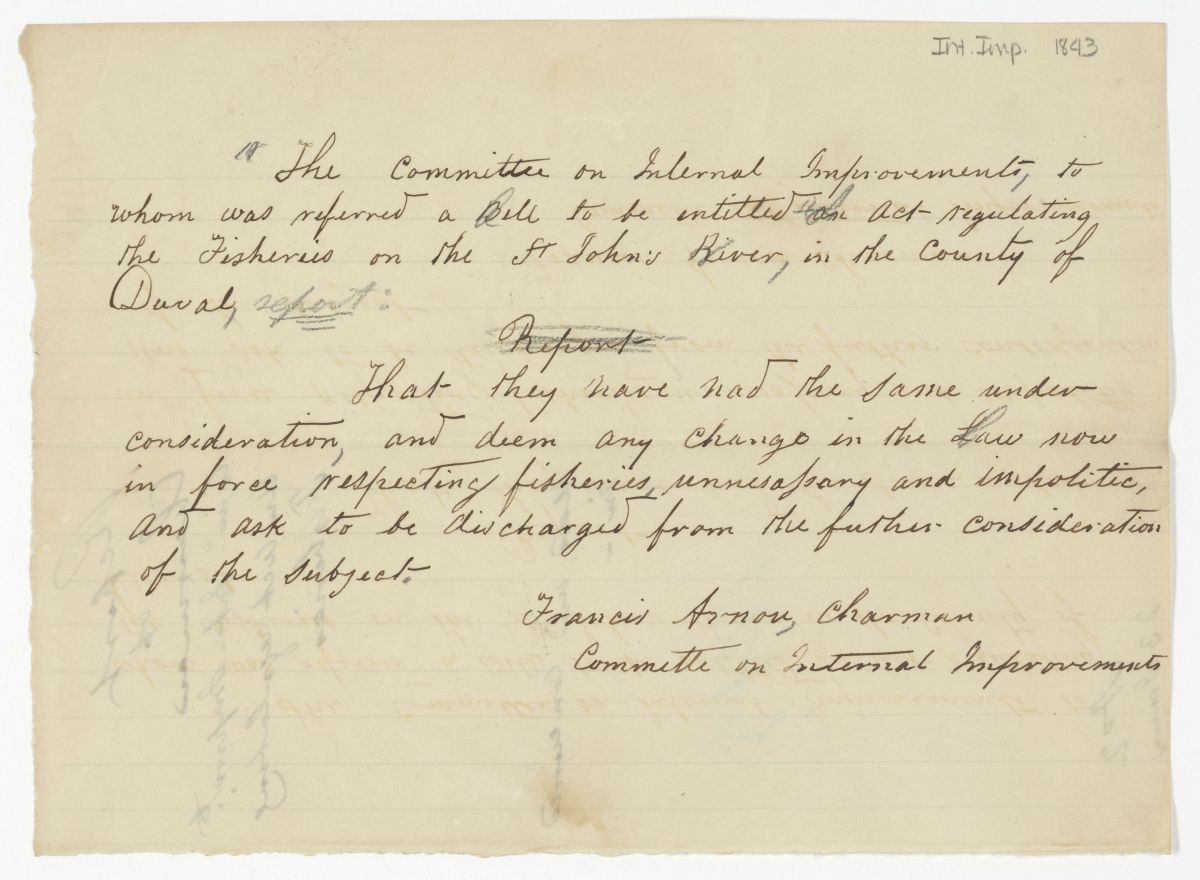 Int. Imp. 1843
The Committee on Internal Improvements, to
whom was referred a Bill to be entitled an Act regulating
the Fisheries on the St John's River, in the County of
Duval, report:
Report
That they have had the same under
consideration, and deem any change in the Law now
in force respecting fisheries, unnesassary and impolitic,
and ask to be discharged from the futher consideration
of the subject.
Francis Arnou, Charman
Committe on Internal Improvements